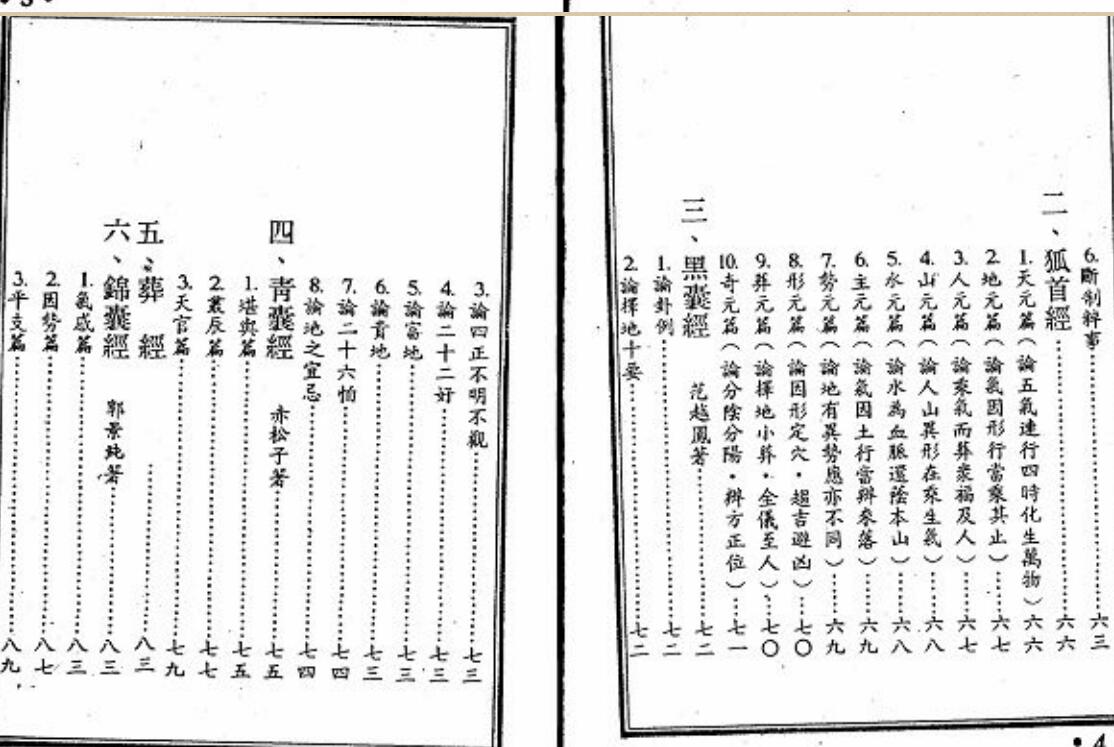 6.斷制粹事……六三
二、狐首經……六六
1.天元篇（論五氣連行四時化生萬物）……六六
2.地元篇（論氣因形行當乘其止）……六七
3.人元篇（論乘氣而葬蔭福及人）……六七
4.山元篇（論人山異形在乘生氣）……六八
5.水元篇（論水為血脈還蔭本山）……六八
6.主元篇（論氣因土行當辨來落）……六九
7.勢元篇（論地有異勢應亦不同）……六九
8.形元篇（論因形定穴・趨吉避凶）……七〇
9.葬元篇（論擇地小葬・全儀至人）……七〇
10.奇元篇（論分陰分陽・辨方正位）……七一
三、黑囊經　范越鳳著……七二
1.論卦例……七二
2.論擇地十要……七二
3.論四正不明不觀……七三
4.論二十二好……七三
5.論富地……七三
6.論貴地……七三
7.論二十六怕……七四
8.論地之宜忌……七四
四、青囊經　赤松子著……七五
1.堪輿篇……七五
2.叢辰篇……七七
3.天官篇……七九
五、葬經……八三
六、錦囊經　郭景純著……八三
1.氣感篇……八三
2.因勢篇……八七
3.平支篇……八九
• 4